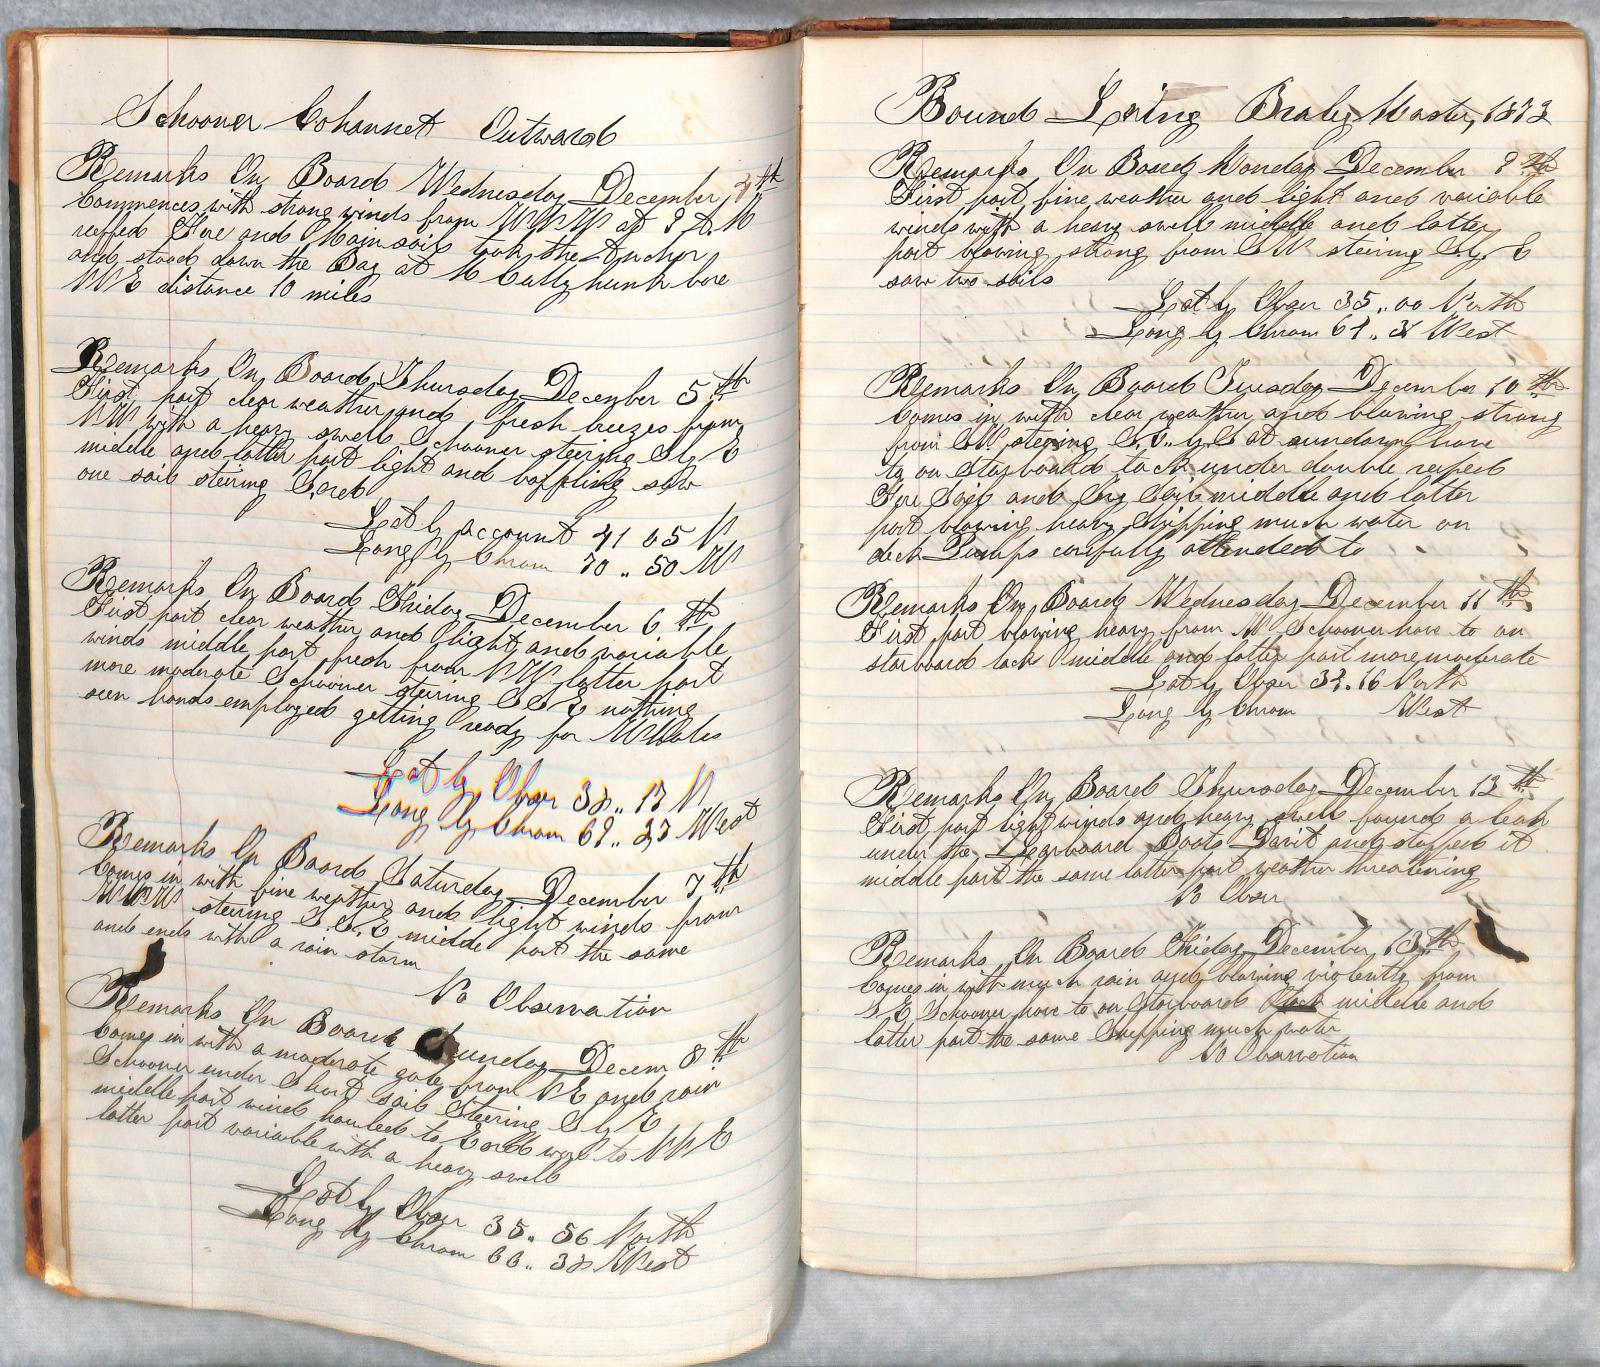 Schooner Cohannet Outward
Remarks On Board Wednesday December 4th
Commences with strong winds from WNW at 9 A.M
reefed Fore and Mainsail took the Anchor
and stood down the Bay at M Cuttyhunk bore
NNE distance 10 miles
Remarks On Board Thursday December 5th
First part clear weather and fresh breezes from
NW with a heavy swell Schooner steering S by E
middle and latter part light and baffling saw
one sail steering S.ard
Lat by account 41 05 N
Long by Chrom 70 .. 50 W
Remarks On Board Friday December 6th
First part clear weather and light and variable
winds middle part fresh from NW latter part
more moderate Schooner steering SSE nothing
seen hands employed getting ready for Whales
Lat by Obser 38 .. 17 N
Long by Chrom 69 .. 23 West
Remarks On Board Saturday December 7th
Comes in with fine weather and light winds from
WNW steering S.S.E middle part the same
and ends with a rain storm
No Observation
Remarks On Board Sunday Decem 8th
Comes in with a moderate gale from NE and rain
Schooner under Short sail Steering S by E
middle part wind hauled to
latter part variable with a heavy swell
Lat by Obser 35 .. 56 North
Long by Chrom 66 .. 38 West
Bound Loring Braley Master, 1872
Remarks On Board Monday December 9th
First part fine weather and light and variable
winds with a heavy swell middle and latter
part blowing strong from SW steering S.y. E
saw two sails
Lat by Obser 35 .. 00 North
Long by Chrom West
Remarks On Board Tuesday December 10th
Comes in with clear weather and blowing strong
from SW steering at sundown hove
to on Starboard tack under double reefed
Fore Sail and Try Sail middle and latter
part blowing heavy Shipping much water on
deck Pumps carefully attended to
Remarks On Board Wednesday December 11th
First part blowing heavy from W Schooner hove to on
starboard tack middle and latter part more moderate
Lat by Obser 16 North
Long by Chrom West
Remarks On Board Thursday December 12th
First part light winds and heavy swell found a leak
under the Larboard Boats Davit and stopped it
middle part the same latter part weather threatening
No Obser
Remarks On Board Friday December 13th
Comes in with much rain and blowing violently from
S.E Schooner hove to on Starboard tack middle and
latter part the same Shipping much water
No Observation